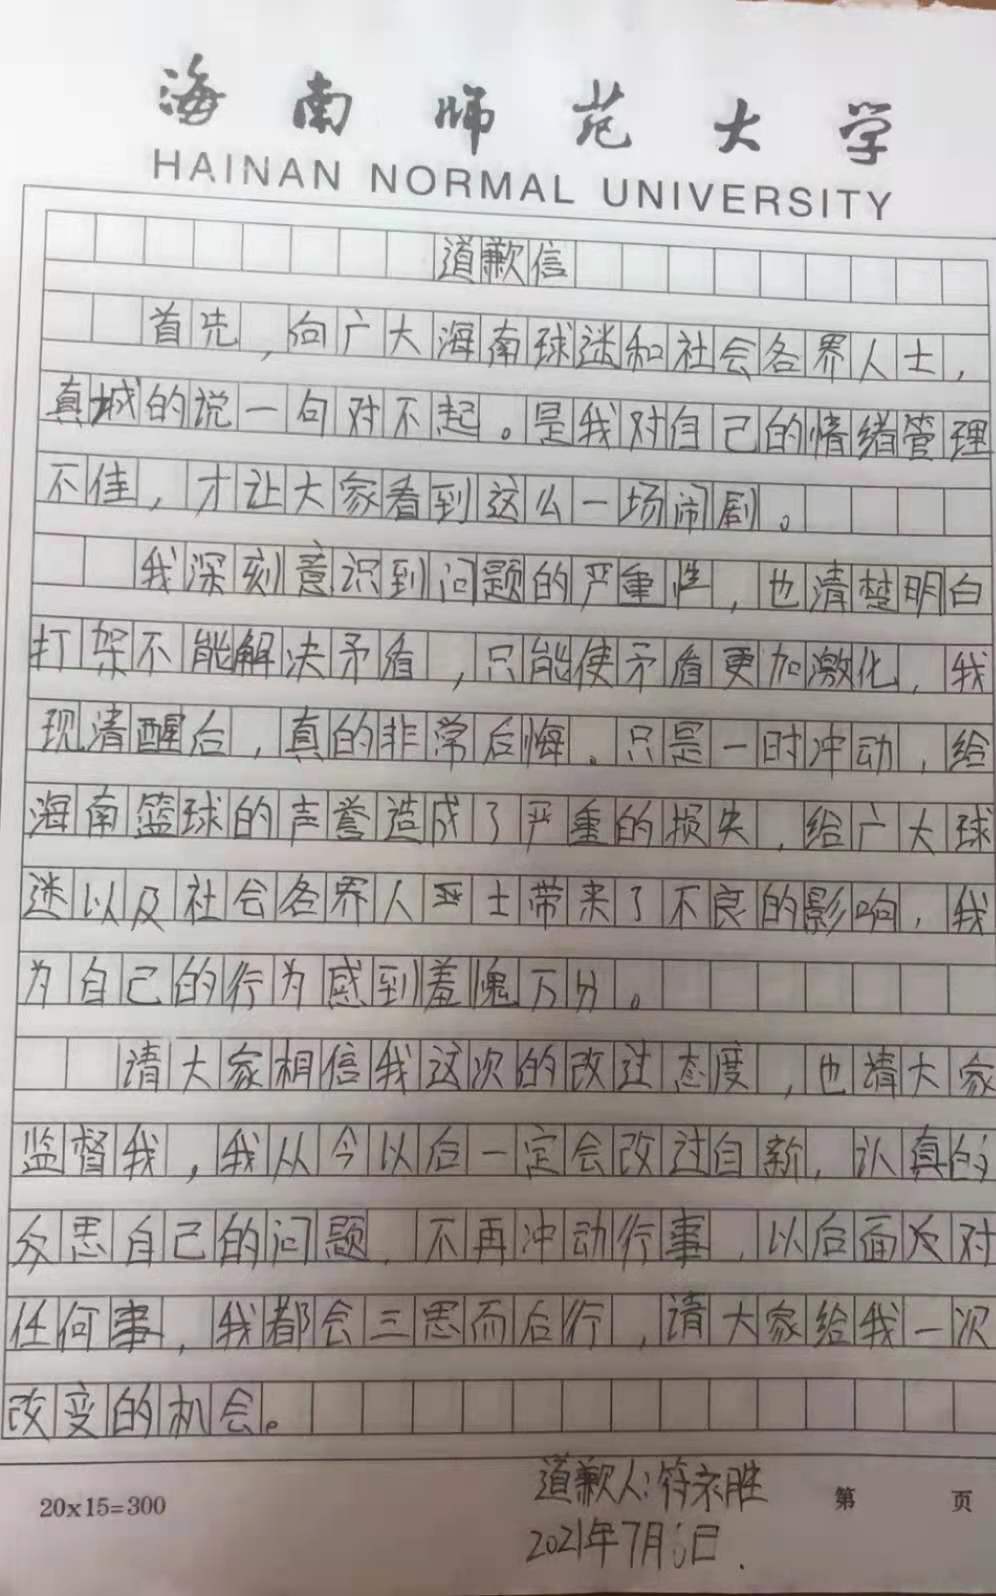 海南师范大学
HAINAN NORMAL UNIVERSITY
道歉信
首先,向广大海南球迷和社会各界人士,
真城的说一句对不起。是我对自己的情绪管理
不佳,才让大家看到这么一场闹剧。
我深刻意识到问题的严重性,也清楚明白
打架不能解决矛盾,只能使矛盾更加激化,我
现清醒后,真的非常后悔。只是一时冲动,给
海南篮球的声誉造成了严重的损失,给广大球
迷以及社会各界人士带来了不良的影响,我
为自己的行为感到羞愧万分。
请大家相信我这次的改过态度,也请大家
监督我,我从今以后一定会改过自新,认真的
反思自己的问题,不再冲动行事,以后面对
任何事,我都会三思而后行,请大家给我一次
改变的机会。
道歉人:符永胜
2021年7月 日.
20x15=300
第 页